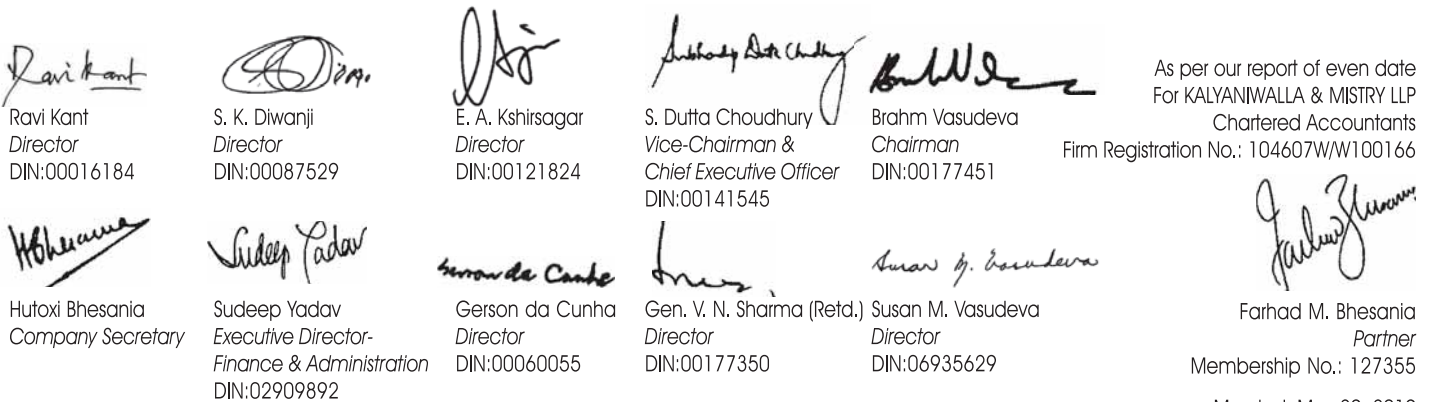 Ravi Kant
Ravi Kant
Director
DIN:00016184
S. K. Diwanji
Director
DIN:00087529
E. A. Kshirsagar
Director
DIN:00121824
Subhadip Dutta Choudhury
S. Dutta Choudhury
Vice-Chairman &
Chief Executive Officer
DIN:00141545
Brahm Vasudeva
Chairman
DIN:00177451
As per our report of even date
For KALYANIWALLA & MISTRY LLP
Chartered Accountants
Firm Registration No.: 104607W/W100166
HBhesania
Hutoxi Bhesania
Company Secretary
Sudeep Yadav
Sudeep Yadav
Executive Director-
Finance & Administration
DIN:02909892
Gerson da Cunha
Gerson da Cunha
Director
DIN:00060055
Gen. V. N. Sharma (Retd.)
Director
DIN:00177350
Susan M. Vasudeva
Susan M. Vasudeva
Director
DIN:06935629
Farhad M. Bhesania
Partner
Membership No.: 127355